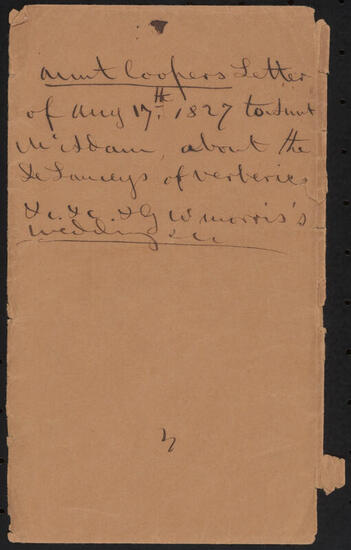 Aunt Coopers Letter
of Aug 17th. 1827 to Aunt
McAdam, about the
De Lanceys of Verberie
&c. &c. & G W Morris's
Wedding &c